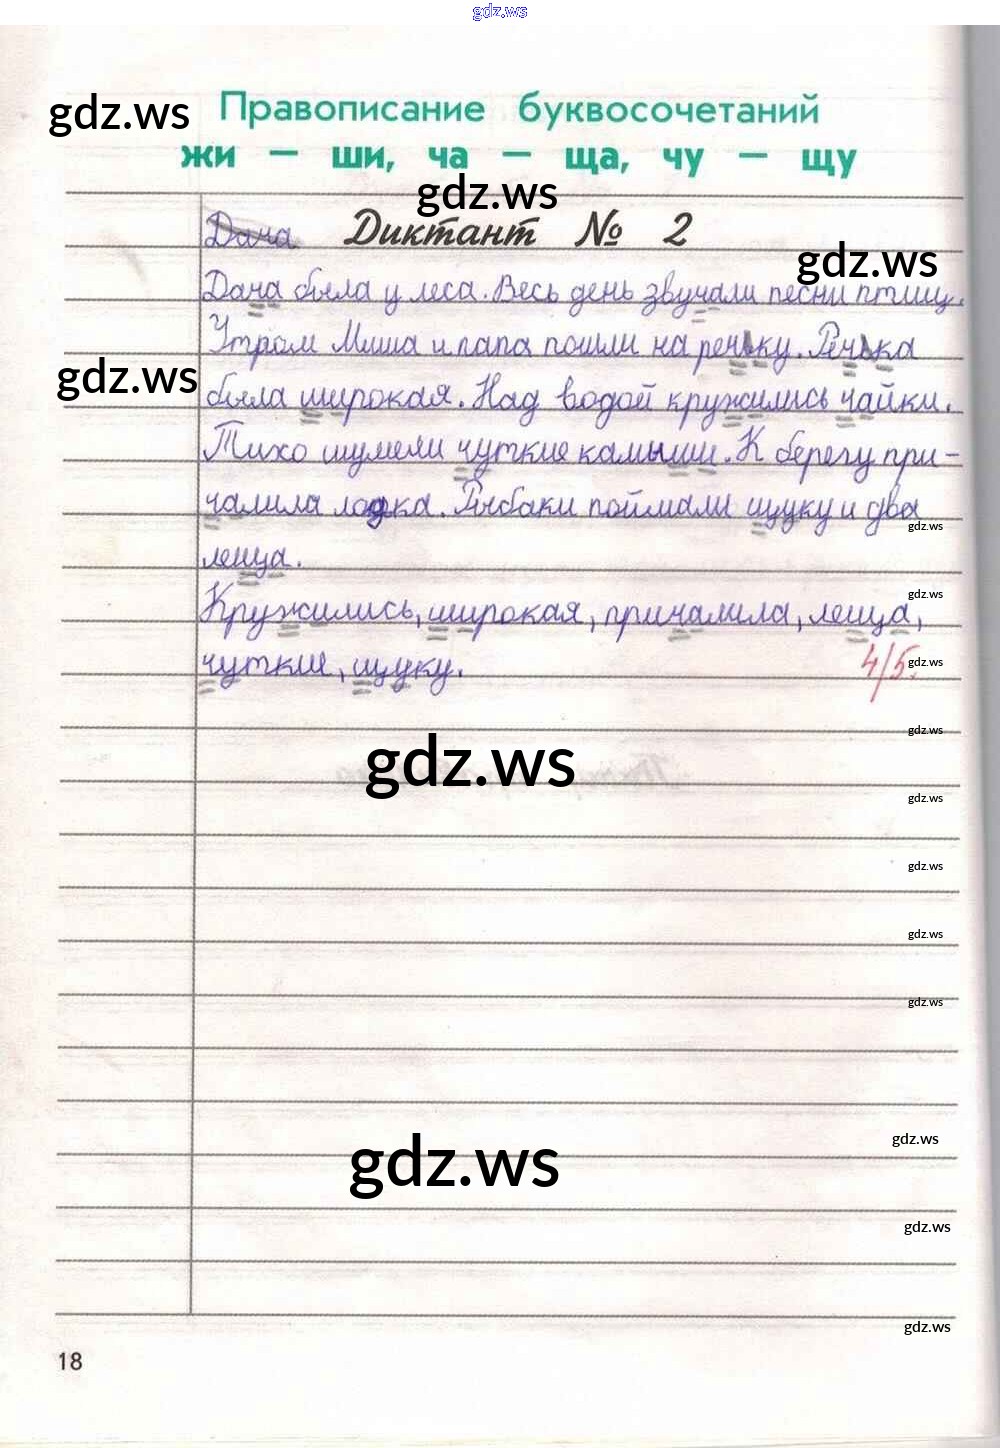 gdz.ws
Правописание буквосочетаний
gdz.ws
жи — ши, ча — ща, чу — щу
gdz.ws
Дача Диктант № 2
gdz.ws
Дача была у леса. Весь день звучали песни птиц.
Утром Миша и папа пошли на речку. Речка
gdz.ws
была широкая. Над водой кружились чайки.
Тихо шумели чуткие камыши. К берегу при-
чалила лодка. Рыбаки поймали щуку и два
gdz.ws
леща.
gdz.ws
Кружились, широкая, причалила, леща,
чуткие, щуку. 4/5.
gdz.ws
gdz.ws
gdz.ws
gdz.ws
gdz.ws
gdz.ws
gdz.ws
gdz.ws
gdz.ws
gdz.ws
gdz.ws
18